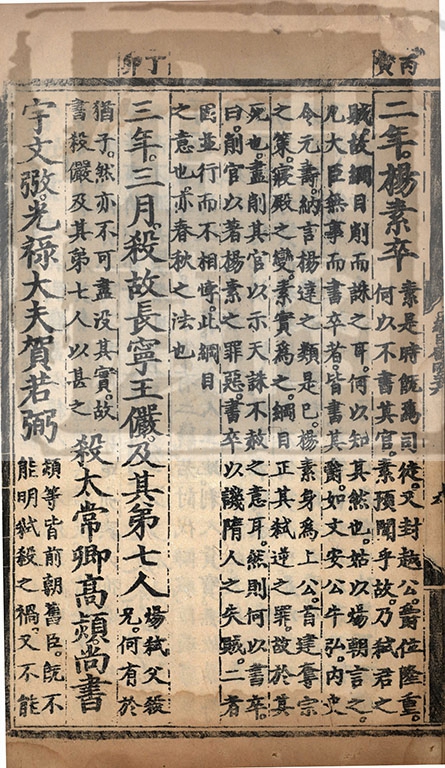 丙寅
二年。楊素卒
素是時既爲司徒。又封越公爵位隆重。
何以不書其官。素預聞乎故。乃弑君之
賊。故綱目削而誅之耳。何以知其然也。姑以煬朝言之
凡大臣無事而書卒者。皆書其爵。如文安公牛弘。内史
令元壽。納言楊達之類是已。楊素身爲上公。首建奪宗
之策。寢殿之變。素實爲之。綱目正其弑逆之罪。故於其
死也。盡削其官以示天誅不敢之意耳。然則何以書卒。
曰。削官以著楊素之罪惡。書卒以譏隋人之失賊。二者
固並行而不相悖。此綱目
之意也。亦春秋之法也
丁卯
三年。三月。殺故長寧王儼。及其弟七人
煬弑父殺
兄。何有於
猶子。然亦不可盡没其實。故
書殺儼及其弟七人以甚之
殺太常卿高熲。尚書
宇文㢸。光祿大夫賀若弼
熲等皆前朝舊臣。既不
能明弑殺之禍。又不能